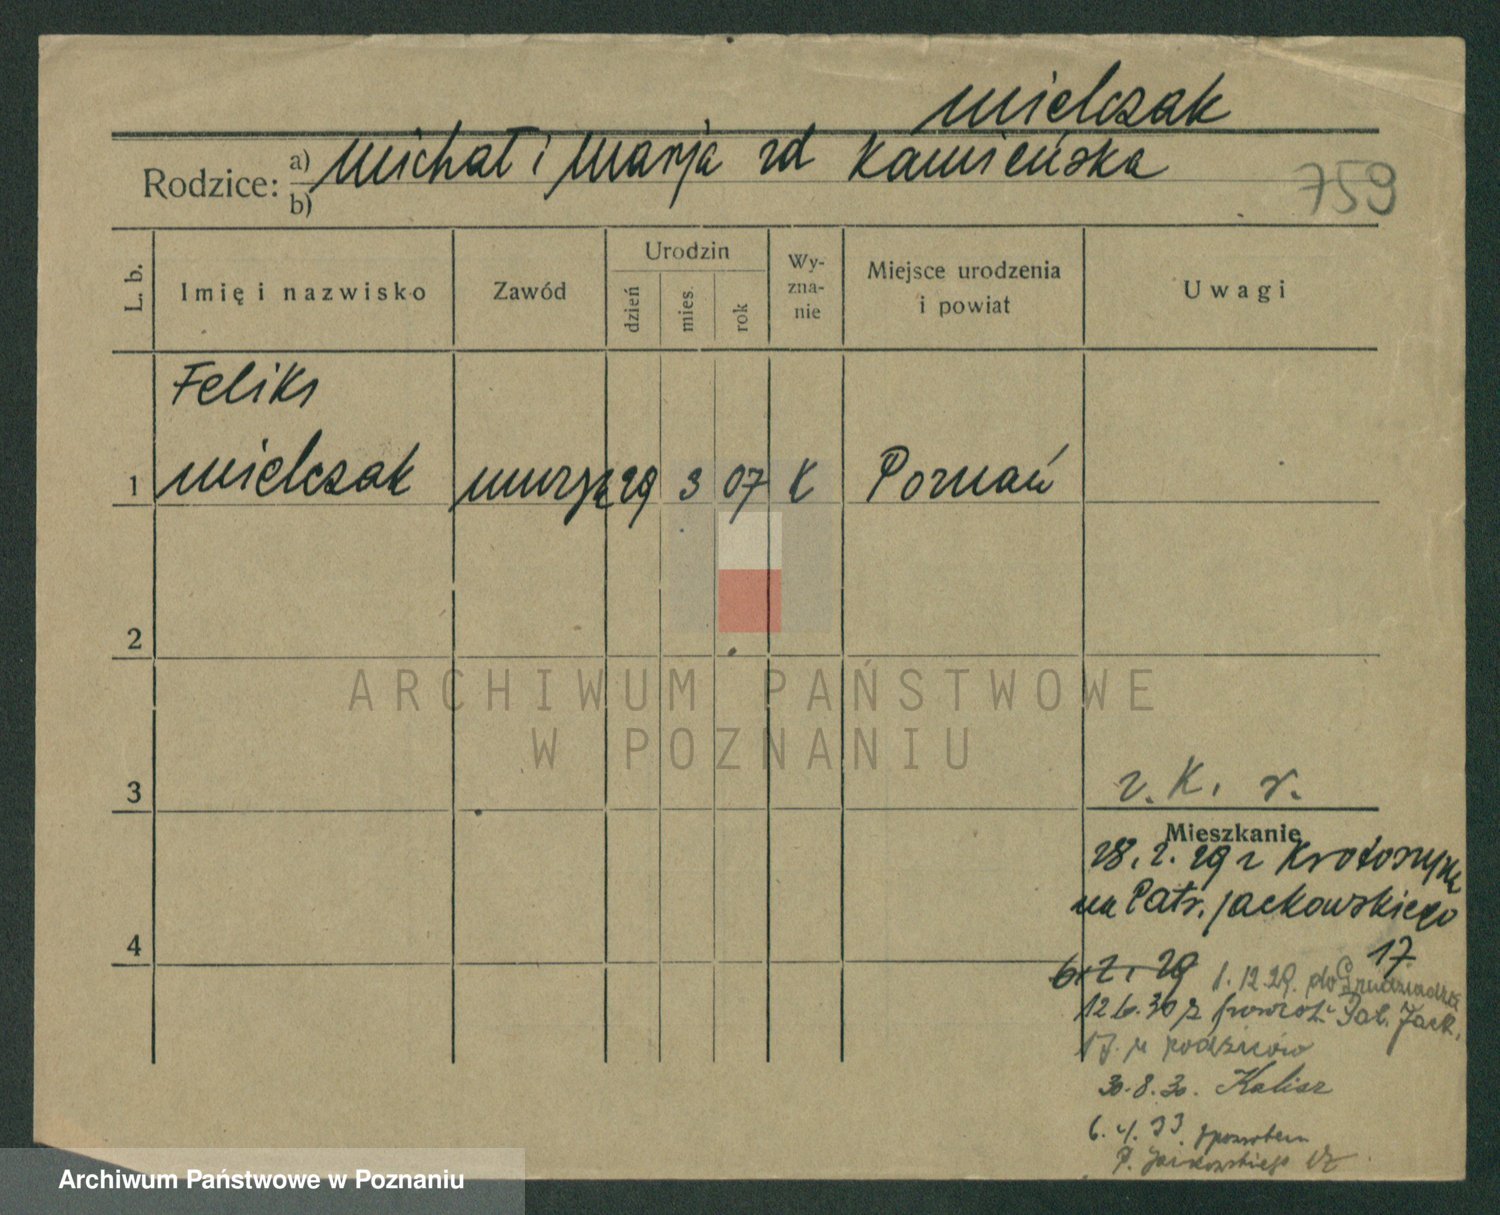 Mielczak
Rodzice: a) Michał i Marja zd Kamieńska
b)
759
L. b.
Imię i nazwisko
Zawód
Urodzin
dzień
mies.
rok
Wy-
zna-
nie
Miejsce urodzenia
i powiat
Uwagi
Feliks
1 Mielczak murarz 29 3 07 K Poznań
2
ARCHIWUM PAŃSTWOWE
W POZNANIU
3
z. K. r.
Mieszkanie
28.2.29 z Krotoszyna
na Patr. Jackowskiego
17
6.2.29 1.12.29. do Grudziądza
12.6.30 z powrot. Pat. Jack.
17. u rodziców
30.8.30. Kalisz
6.4.33. z powrotem
P. Jackowskiego
4
Archiwum Państwowe w Poznaniu